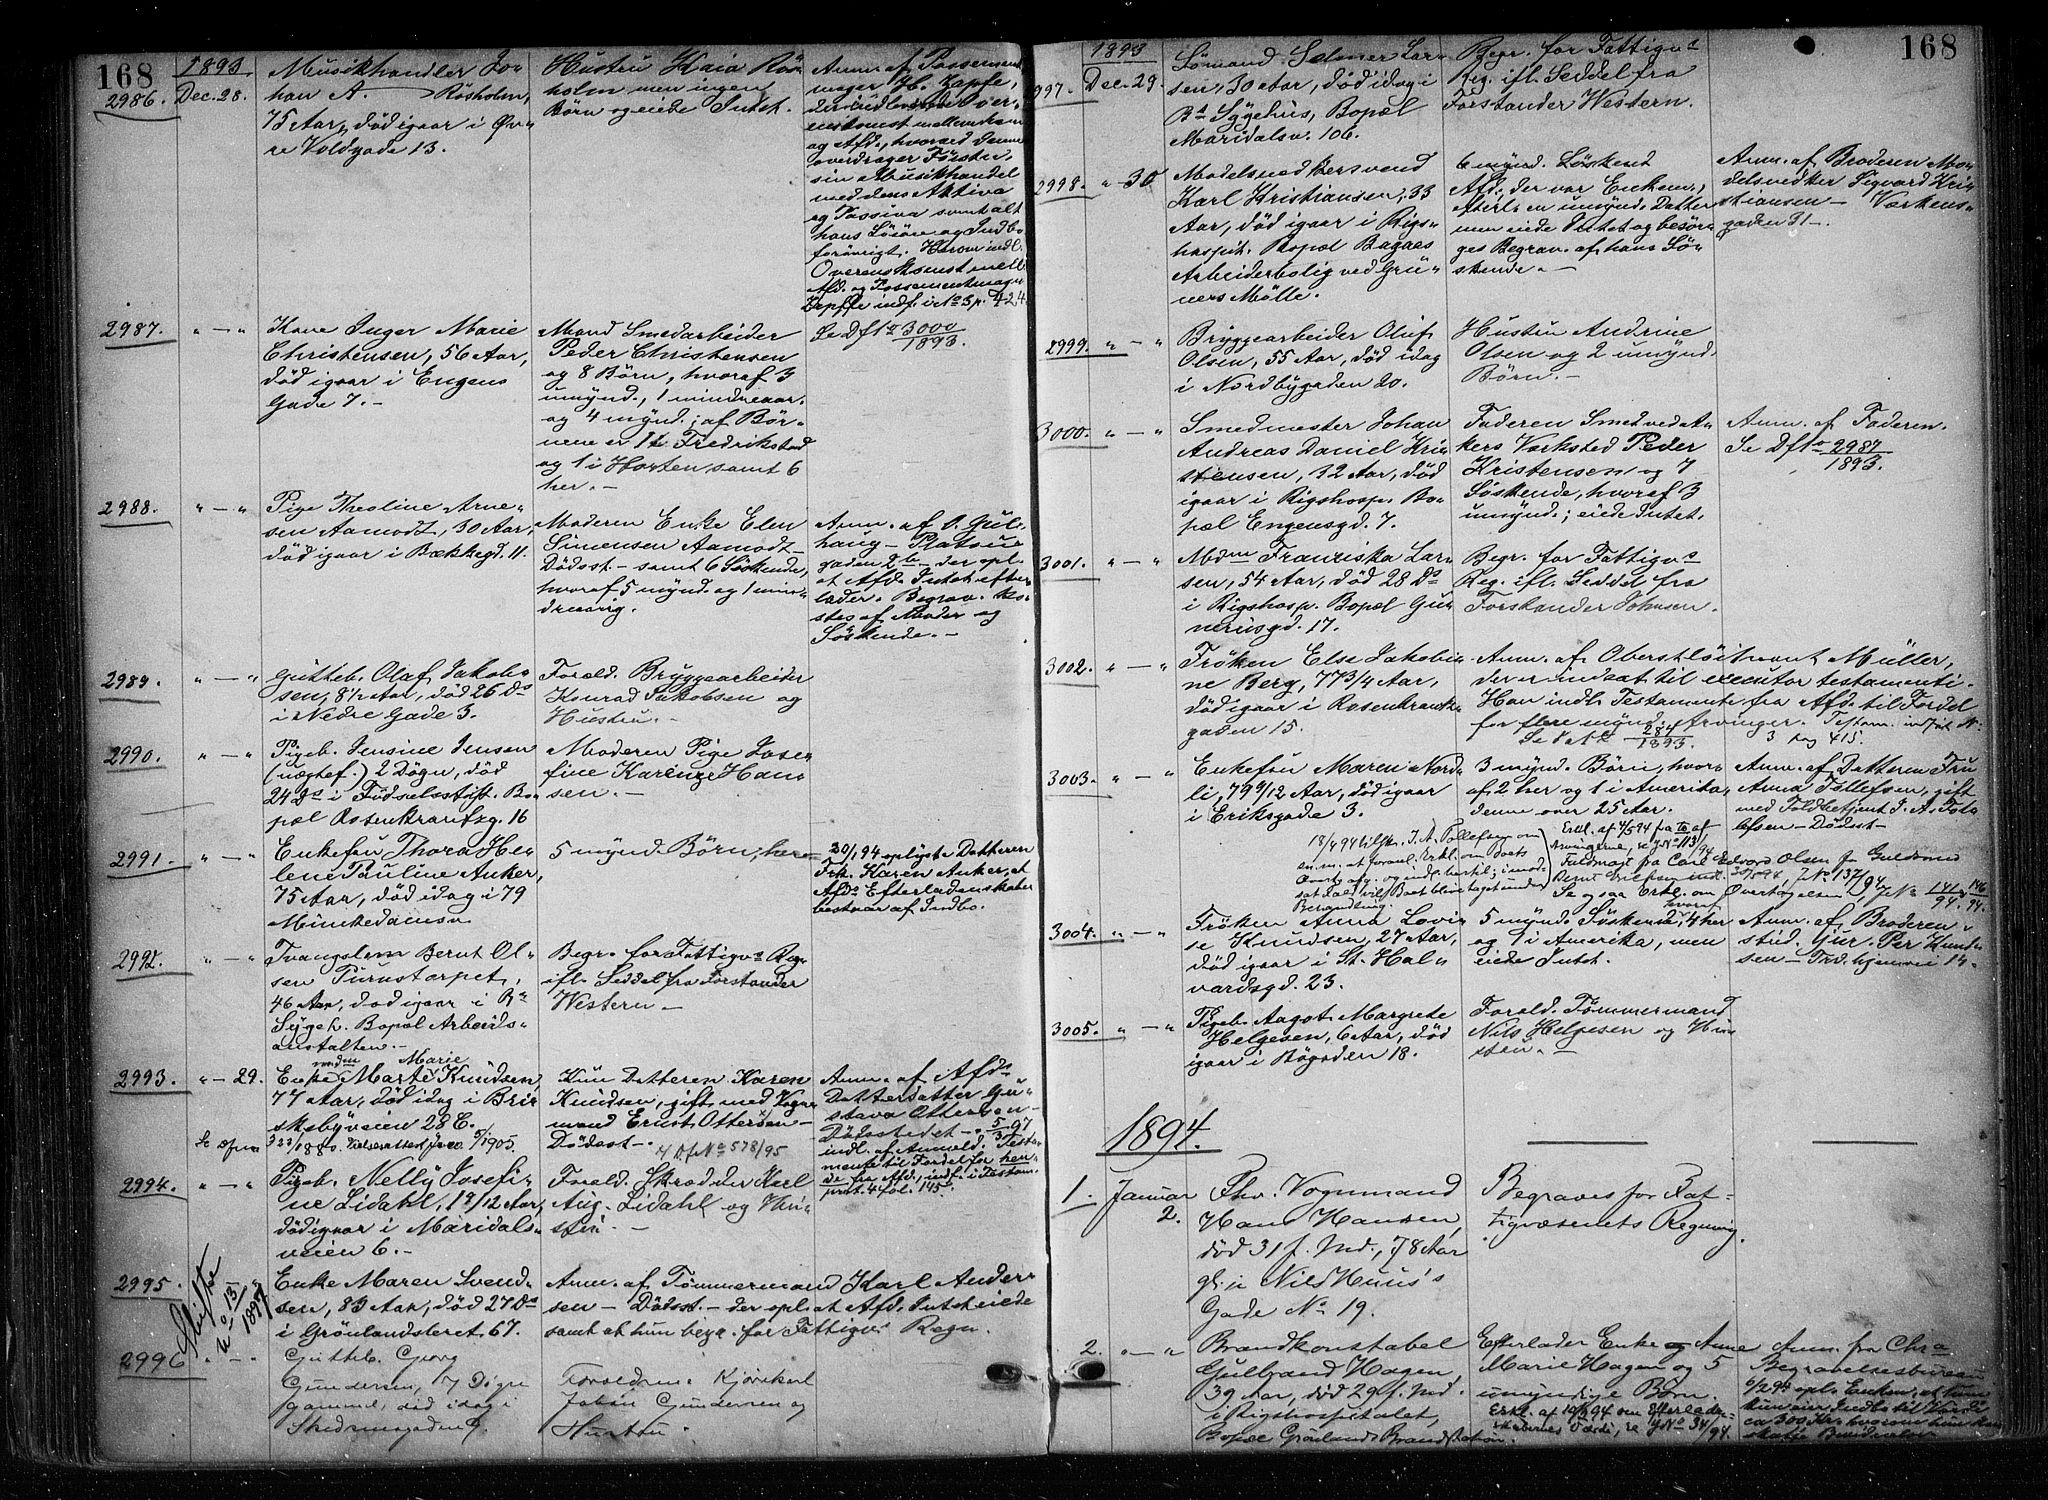 168
1893
2986. Dec. 28.
Musikhandler Jo-
han A. Rösholm,
75 Aar, død igaar i Øv-
re Voldgade 13.
Hustru Kaia Rös-
holm, men ingen
Børn og eiede Intet.
Anm. af Possement-
mager H. Zapfe,
Overenskomst mellem ham
og Afd., hvorved denne
overdrager Förster
sin Musikhandel
med dens Aktiva
og Passiva samt alt
hans Løsøre og Indbo
forøvrigt. Herom indl.
Overenskomst mell.
Afd. og Possementmager
Zapffe indf. i No 3 p. 424
2987. " — "
Kone Inger Marie
Christensen, 56 Aar,
død igaar i Engens
Gade 7. —
Mand Smedarbeider
Peder Christensen
og 8 Børn, hvoraf 3
umynd., 1 mindreaar.
og 4 mynd.; af Bør-
nene er 1 i Fredrikstad
og 1 i Horten, samt 6
her. —
Se Dfto 3000/1893.
2988. " — "
Pige Theoline Arne-
sen Aamodt, 30 Aar,
død igaar i Bækkegd. 11.
Moderen Enke Elen
Simensen Aamodt —
Dødsst. — samt 6 Søskende,
hvoraf 5 mynd. og 1 min-
dreaarig.
Anm. af O. Gul-
haug — Platous
gaden 2 b — der opl.
at Afd. Intet efter-
lader. Begrav. ko-
stes af Moder og
Søskende. —
2989. " — "
Gutteb. Olaf Jakob-
sen, 8½ Aar, død 26 Ds
i Nedre Gade 3.
Foræld. Bryggearbeider
Konrad Jakobsen og
Hustru. —
2990. " — "
Pigeb. Jensine Jensen
(uægtef.) 2 Døgn, død
24 Ds i Fødselsstift. Bo-
pæl Rosenkrantzg. 16
Moderen Pige Jose-
fine Karense Han-
sen. —
2991. " — "
Enkefru Thora He-
lene Pauline Anker,
75 Aar, død idag i 79
Munkedamsv.
5 mynd. Børn, her —
30/1 94 oplyste Datteren
Frk. Karen Anker, at
Afds Efterladenskaber
bestaar af Indbo.
2992. " — "
Tvangslem Bernt Ol-
sen Turustorpet,
46 Aar, død igaar i Bs
Sygeh. Bopæl Arbeids-
anstalten. —
Begr. for Fattigvs Reg.
ifl. Seddel fra Forstander
Western —
2993. " — 29.
Enkemadm Marte Marie Knudsen,
77 Aar, død idag i Bris-
kebyveien 28 C.
Kun Datteren Karen
Knudsen, gift med Vogn-
mand Ernst Ottersen —
Dødsst. —
Df No 578/95
Anm. af Afds
Datterdatter Gu-
stava Ottersen —
Dødsstedet —
indl. af Anmeld. Testa-
mente til Fordel for hen-
de fra Afd., indf. i Testam.
prot. 4 fol. 145.
2994. " — "
Pigeb. Nelly Josefi-
ne Lidahl, 1 8/12 Aar,
død igaar i Maridals-
veien 6. —
Foræld. Skrædder Karl
Aug. Lidahl og Hu-
stru. —
2995.
Skifte
No 13
1897
Enke Maren Svend-
sen, 83 Aar, død 27 Ds
i Grönlandsleret 67.
Anm. af Tømmermand Karl Ander-
sen — Dødsst. — der opl. at Afd. Intet eiede
samt at hun begr. for Fattigvs Regn.
2996 " — "
Gutteb. Georg
Gundersen, 7 Døgn
gammel, død idag i
Skedsmogaden 9.
Forældrene Kjørekarl
Johan Gundersen og
Hustru.
168
1893
2997. Dec. 29
Sömand Selmer Lar-
sen, 30 Aar, død idag i
Bs Sygehus, Bopæl
Maridalsv. 106.
Begr. for Fattigvs
Reg. ifl. Seddel fra
Forstander Western.
2998. " — 30
Modelsnedkersvend
Karl Kristiansen, 33
Aar, død igaar i Rigs-
hospit. Bopæl Bagaas
Arbeiderbolig ved Grü-
ners Mölle.
6 mynd. Søskend
Afd., der var Enkem.,
efterl. en umynd. Datter
men eiede Intet og besør-
ges Begrav. af hans Sø-
skende. —
Anm. af Broderen Mo-
delsnedker Sigvard Kri-
stiansen — Værkens-
gaden 31. —
2999. " — "
Bryggearbeider Oluf
Olsen, 55 Aar, død idag
i Nordbygaden 20.
Hustru Andrine
Olsen og 2 umynd.
Børn. —
3000. " — "
Smedmester Johan
Andreas Daniel Kri-
stensen, 12 Aar, død
igaar i Rigshosp. Bo-
pæl Engensgd. 7.
Faderen Smed ved A-
kers Værksted Peder
Kristensen og 7
Søskende, hvoraf 3
umynd.; eiede Intet.
Anm. af Faderen.
Se Dfto 2987/1893.
3001. " — "
Mdm Franziska Lar-
sen, 54 Aar, død 28 Ds
i Rigshosp. Bopæl Gun-
nerusgd. 17.
Begr. for Fattigvs
Reg. ifl. Seddel fra
Forstander Johnsen.
3002. " — "
Frøken Else Jakobi-
ne Berg, 77 3/4 Aar,
død igaar i Rosenkrantz-
gaden 15.
Anm. af Oberstløitnant Müller,
der er indsat til executor testamenti.
Han indl. Testamente fra Afd. til Fordel
for flere mynd. Arvinger. Testam. indført No
3 pag 415.
284/1893.
3003. " — "
Enkefru Maren Nord-
li, 79 9/12 Aar, død igaar
i Eriksgade 3.
3 mynd. Børn, hvor-
af 2 her og 1 i Amerika,
denne over 25 Aar.
Anm. af Datteren Fru
Anna Tollefsen, gift
med Toldbetjent J. A. Tol-
lefsen — Dødsst —
3004. " — "
Frøken Anna Lovi-
se Knudsen, 27 Aar,
død igaar i St. Hal-
vardsgd. 23.
5 mynd. Søskende, hvoraf 4 her
og 1 i Amerika, men
eiede Intet.
Anm. af Broderen
stud. jur. Per Knud-
sen — Trd.hjemsvei 14 —
3005. " — "
Pigeb. Aagot Margrete
Helgesen, 6 Aar, død
igaar i Bøgaden 18.
Foræld. Tømmermand
Nils Helgesen og Hu-
stru. —
1894.
1. Januar
2.
Fhv. Vognmand
Hans Hansen,
død 31 f. Md., 78 Aar
gl. i Nils Huus's
Gade No 19.
Begraves for Fat-
tigvæsenets Regning.
2. " — "
Brandkonstabel
Gulbrand Hagen,
39 Aar, død 29 f. Md.
i Rigshospitalet,
Bopæl Grønlands Brandstation.
Efterlader Enke Anne
Marie Hagen og 5
umyndige Børn.
Anm. fra Chra
Begravelsesbureau